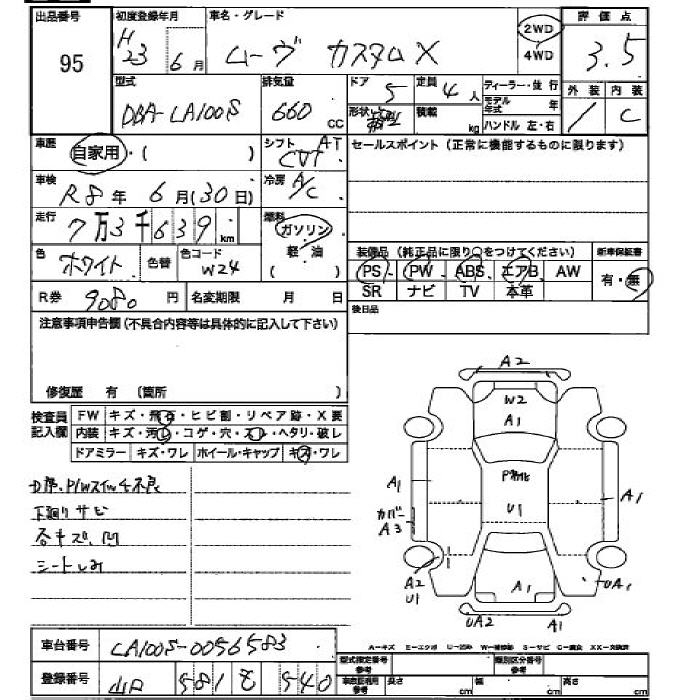 出品番号
95
初度登録年月
H23 6月
車名・グレード
ムーヴ カスタム X
2WD
4WD
評価点
3.5
外装 内装
/ C
型式
DBA-LA100S
排気量
660 CC
ドア
5
定員
4人
形状
積載
kg
ディーラー・並行
モデル年式 年
ハンドル 左・右
車歴
自家用・( )
シフト AT
CVT
セールスポイント(正常に機能するものに限ります)
車検
R8年 6月(30日)
冷房
A/C
走行
7万3千639km
燃料
ガソリン
軽・油
( )
色
ホワイト
色替
色コード
W24
装備品(純正品に限り○をつけてください)
新車保証書
PS・PW・ABS・エアB AW
SR ナビ TV 本革
有・無
R券 9080円
名変期限 月 日
後日品
注意事項申告欄(不具合内容等は具体的に記入して下さい)
修復歴 有 (箇所 )
検査員記入欄
FW キズ・飛石・ヒビ割・リペア跡・X要
内装 キズ・汚れ・コゲ・穴・スレ・ヘタリ・破レ
ドアミラー キズ・ワレ ホイール・キャップ キズ・ワレ
下廻りサビ
各キズ、凹
シートしみ
A2
W2
A1
U1
A1
カバー
A3
A1
A2
U1
A1
UA1
UA2
A1
A-キズ E-エクボ U-凹み W-補修跡 S-サビ C-腐食 XX-交換済
車台番号 LA100S-0056583
登録番号 581 940
型式指定番号参考
類別区分番号参考
車体証明用参考 長さ cm 幅 cm 高さ cm